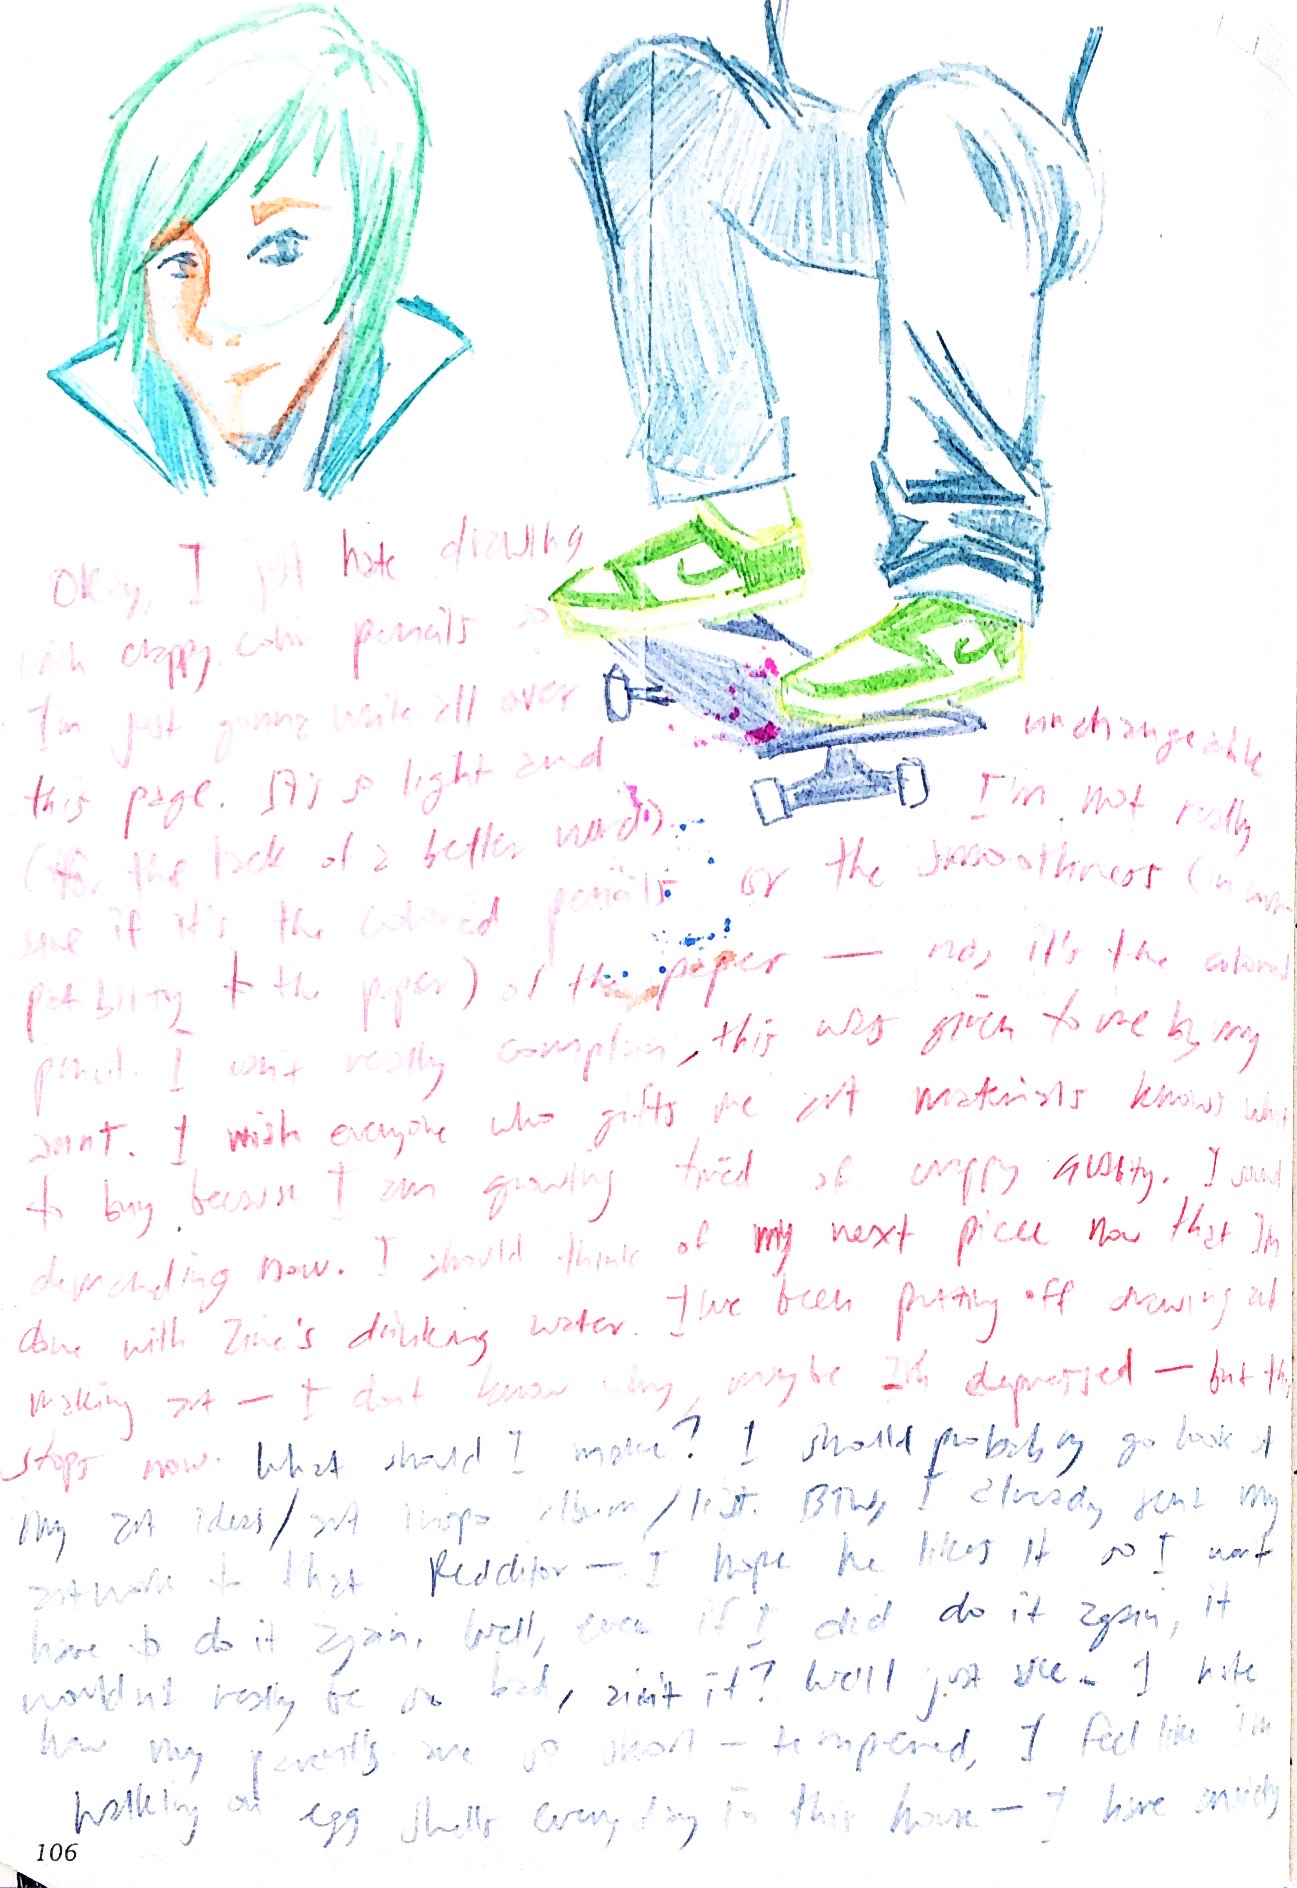 Okay, I just hate drawing
with crappy color pencils so
I'm just gonna write all over
this page. It's so light and unchangeable
(for the lack of a better word). I'm not really
sure if it's the colored pencils or the smoothness (in com
patibility to the paper) of the paper — no, it's the colored
pencil. I can't really complain, this was given to me by my
aunt. I wish everyone who gifts me art materials knows what
to buy because I am growing tired of crappy quality. I sound
demanding now. I should think of my next piece now that I'm
done with Zine's drinking water. I've been putting off drawing and
making art — I don't know why, maybe I'm depressed — but this
stops now. What should I make? I should probably go look at
my art ideas/art inspo album/list. BTW, I already sent my
artwork to that Redditor — I hope he likes it so I won't
have to do it again. Well, even if I did do it again, it
wouldn't really be so bad, ain't it? We'll just see. I hate
how my parents are so short-tempered, I feel like I'm
walking on egg shells everyday in this house — I have anxiety
106